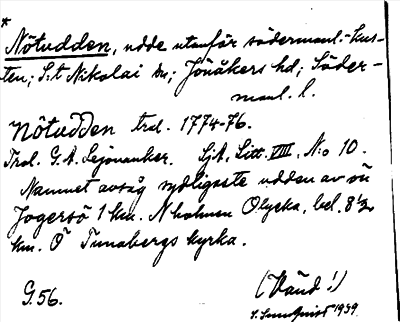 *
Nötudden, udde utanför södermanl.-kus-
ten; S:t Nikolai sn; Jönåkers hd; Söder-
manl. l.
Nötudden trol. 1774-76.
Trol. G. A. Lejonanker. SjA, Litt. VIII, N:o 10.
Namnet avsåg sydligaste udden av ön
Jogersö 1 km. N holmen Olycka, bel. 8 1/2
km. O Tunabergs kyrka.
G. 56.
(Vänd!)
1939